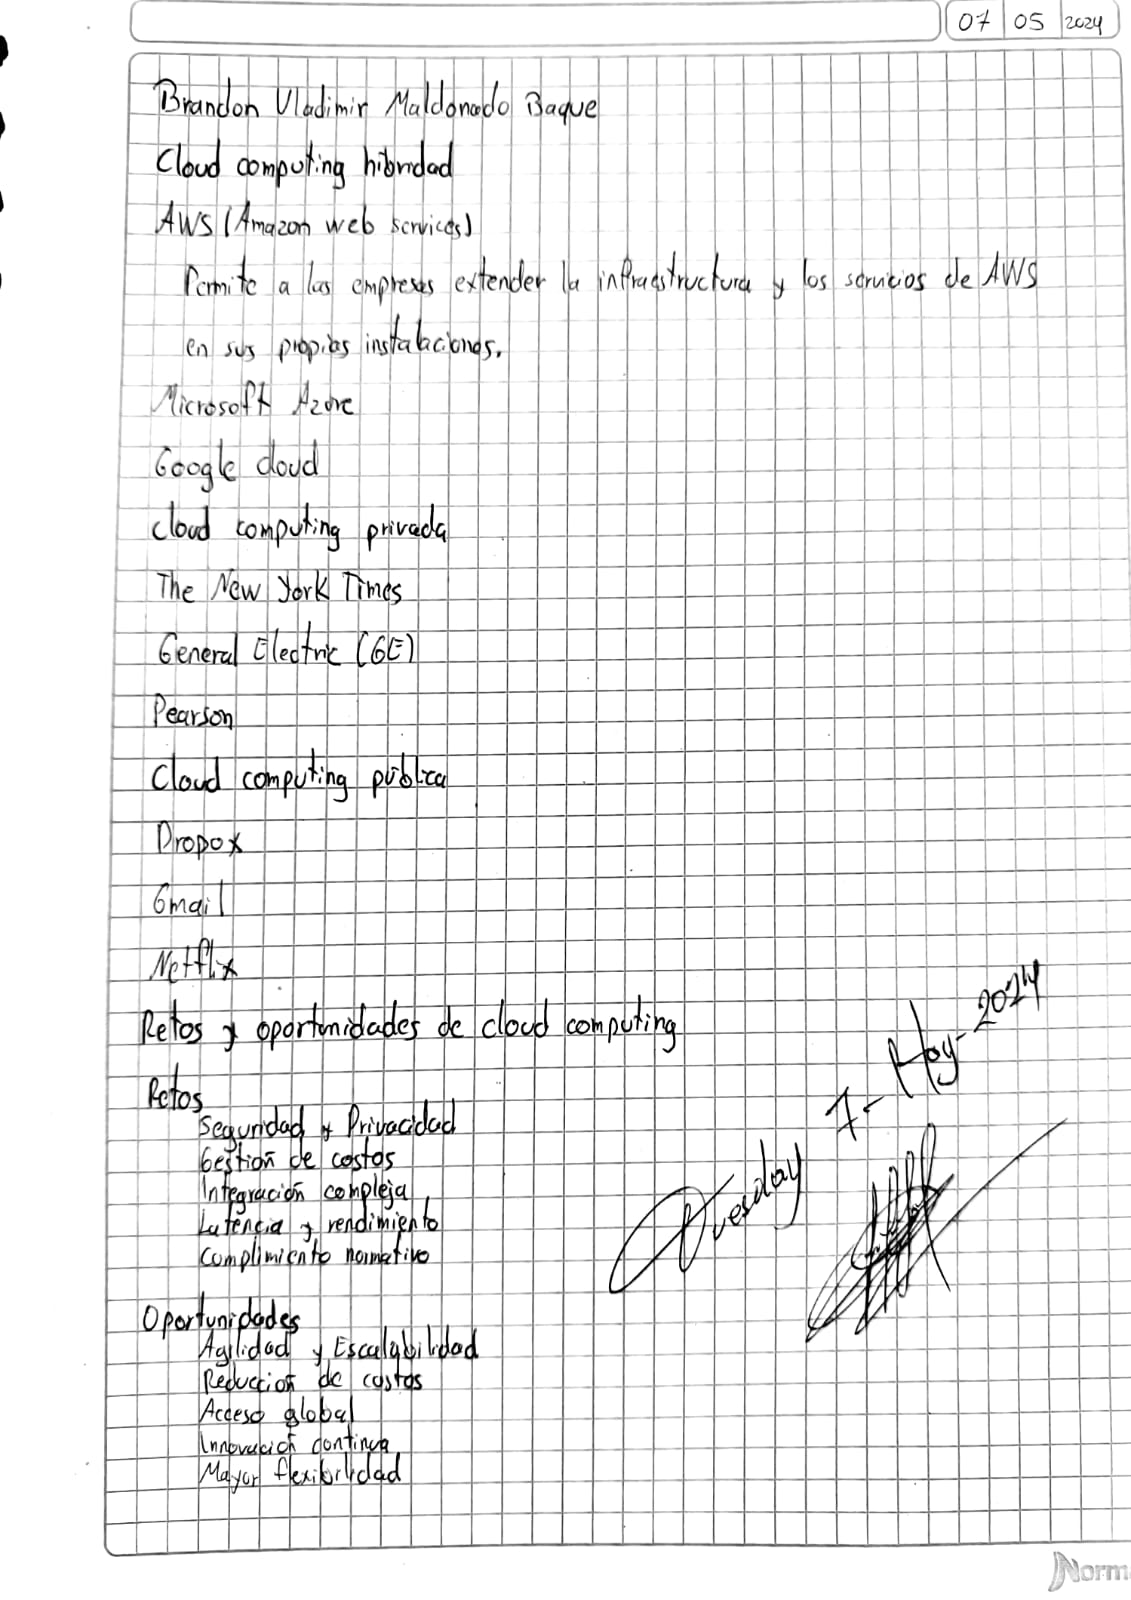 07 05 2024
Brandon Vladimir Maldonado Baque
Cloud computing hibridad
AWS (Amazon web services)
Permite a las empresas extender la infraestructura y los servicios de AWS
en sus propias instalaciones.
Microsoft Azure
Google cloud
cloud computing privada
The New York Times
General Electric (GE)
Pearson
Cloud computing pública
Dropox
Gmail
Netflix
Retos y oportunidades de cloud computing
Retos
Seguridad y Privacidad
Gestión de costos
Integración compleja
Latencia y rendimiento
Cumplimiento normativo
Tuesday 7- May-2024
Oportunidades
Agilidad y Escalabilidad
Reducción de costos
Acceso global
Innovación continua
Mayor flexibilidad
Norm